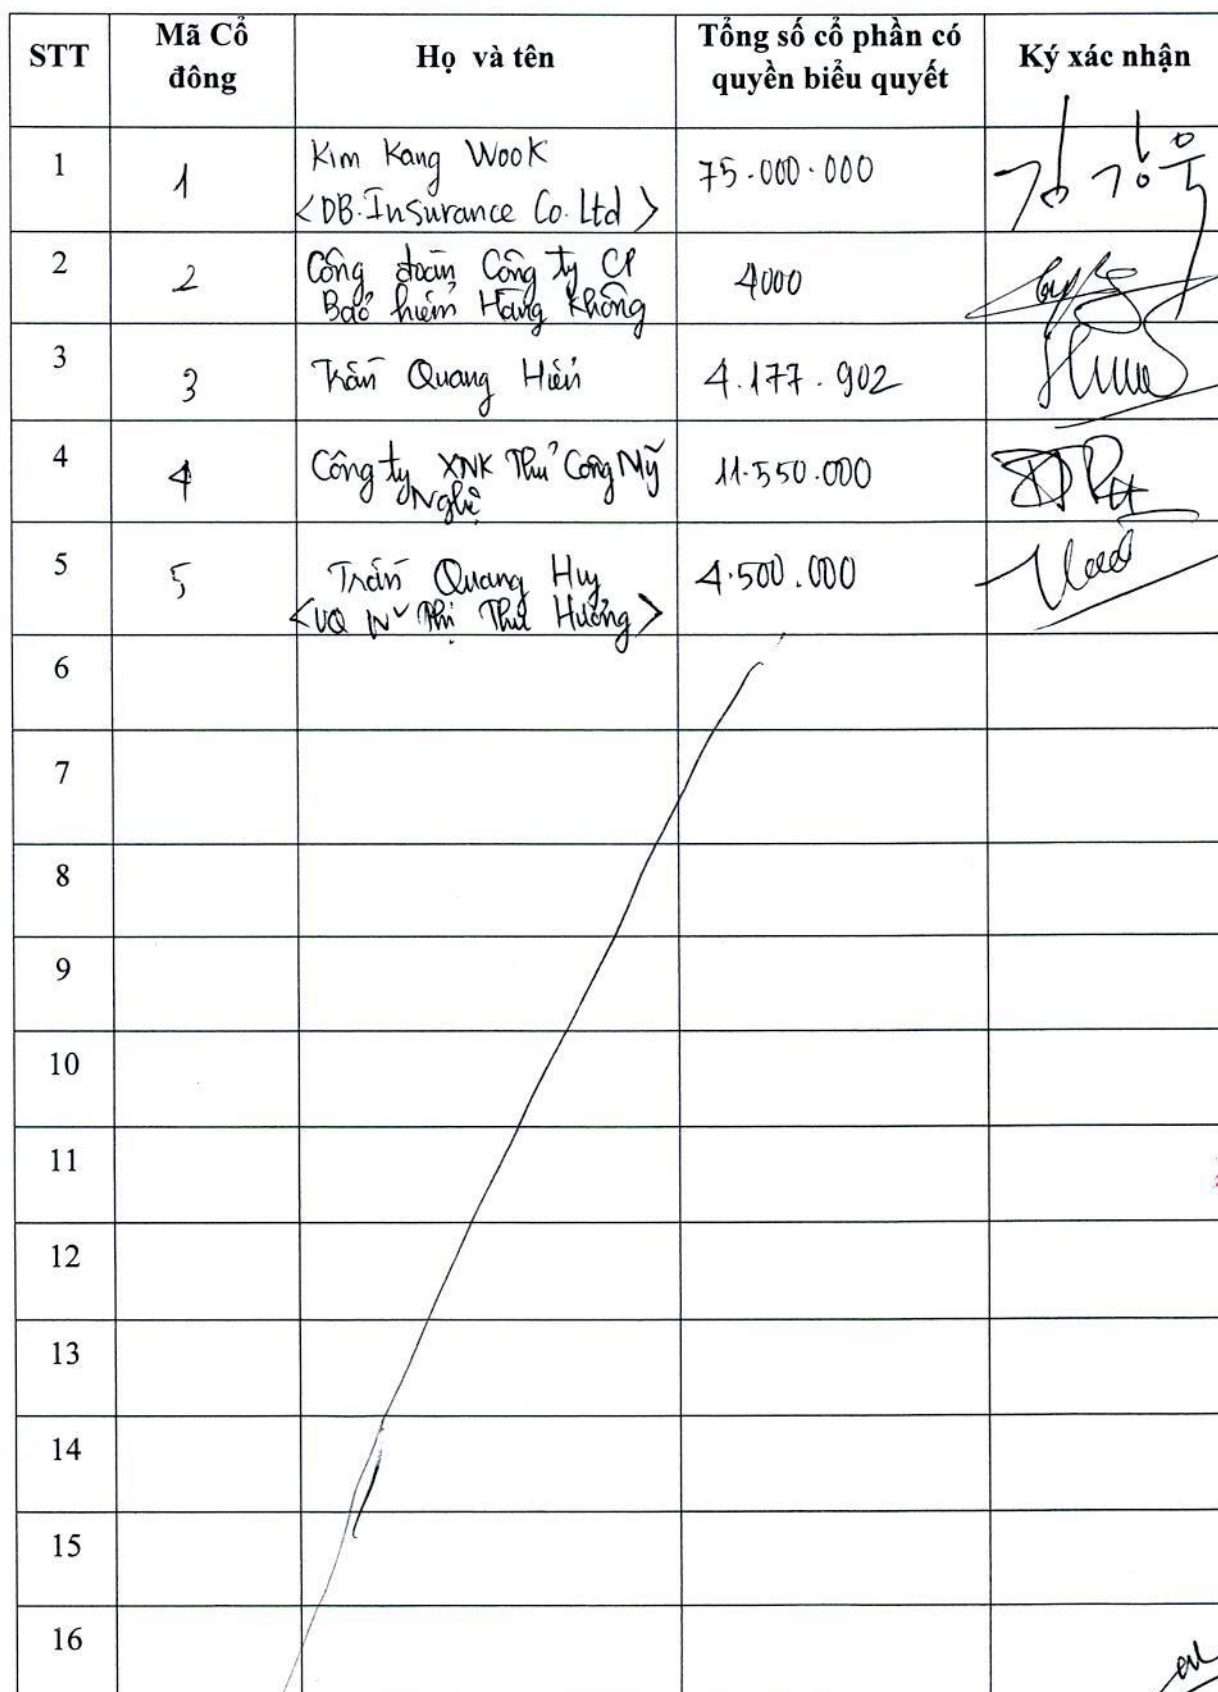 STT
Mã Cổ
đông
Họ và tên
Tổng số cổ phần có
quyền biểu quyết
Ký xác nhận
1
1
Kim Kang Wook
<DB.Insurance Co.Ltd>
75.000.000
김강욱
2
2
Công đoàn Công ty CP
Bảo hiểm Hàng Không
4000
3
3
Trần Quang Hiển
4.177.902
4
4
Công ty XNK Thủ Công Mỹ
Nghệ
11.550.000
5
5
Trần Quang Huy
<UQ Thị Thu Hường>
4.500.000
6
7
8
9
10
11
12
13
14
15
16